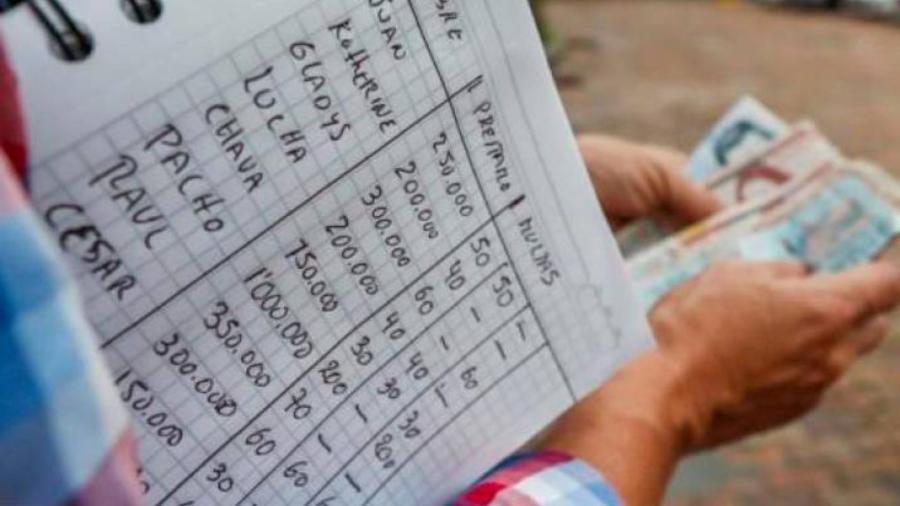 BRE PRESTAMO MULTAS
JUAN 250.000 50 50 –
KATHERINE 200.000 40 – –
GLADYS 300.000 60 – 60
LUCHA 200.000 40 40 –
CHAVA 150.000 30 30 30
PACHO 1'000.000 200 – 200
RAUL 350.000 70 – –
CESAR 300.000 60 60
150.000 30